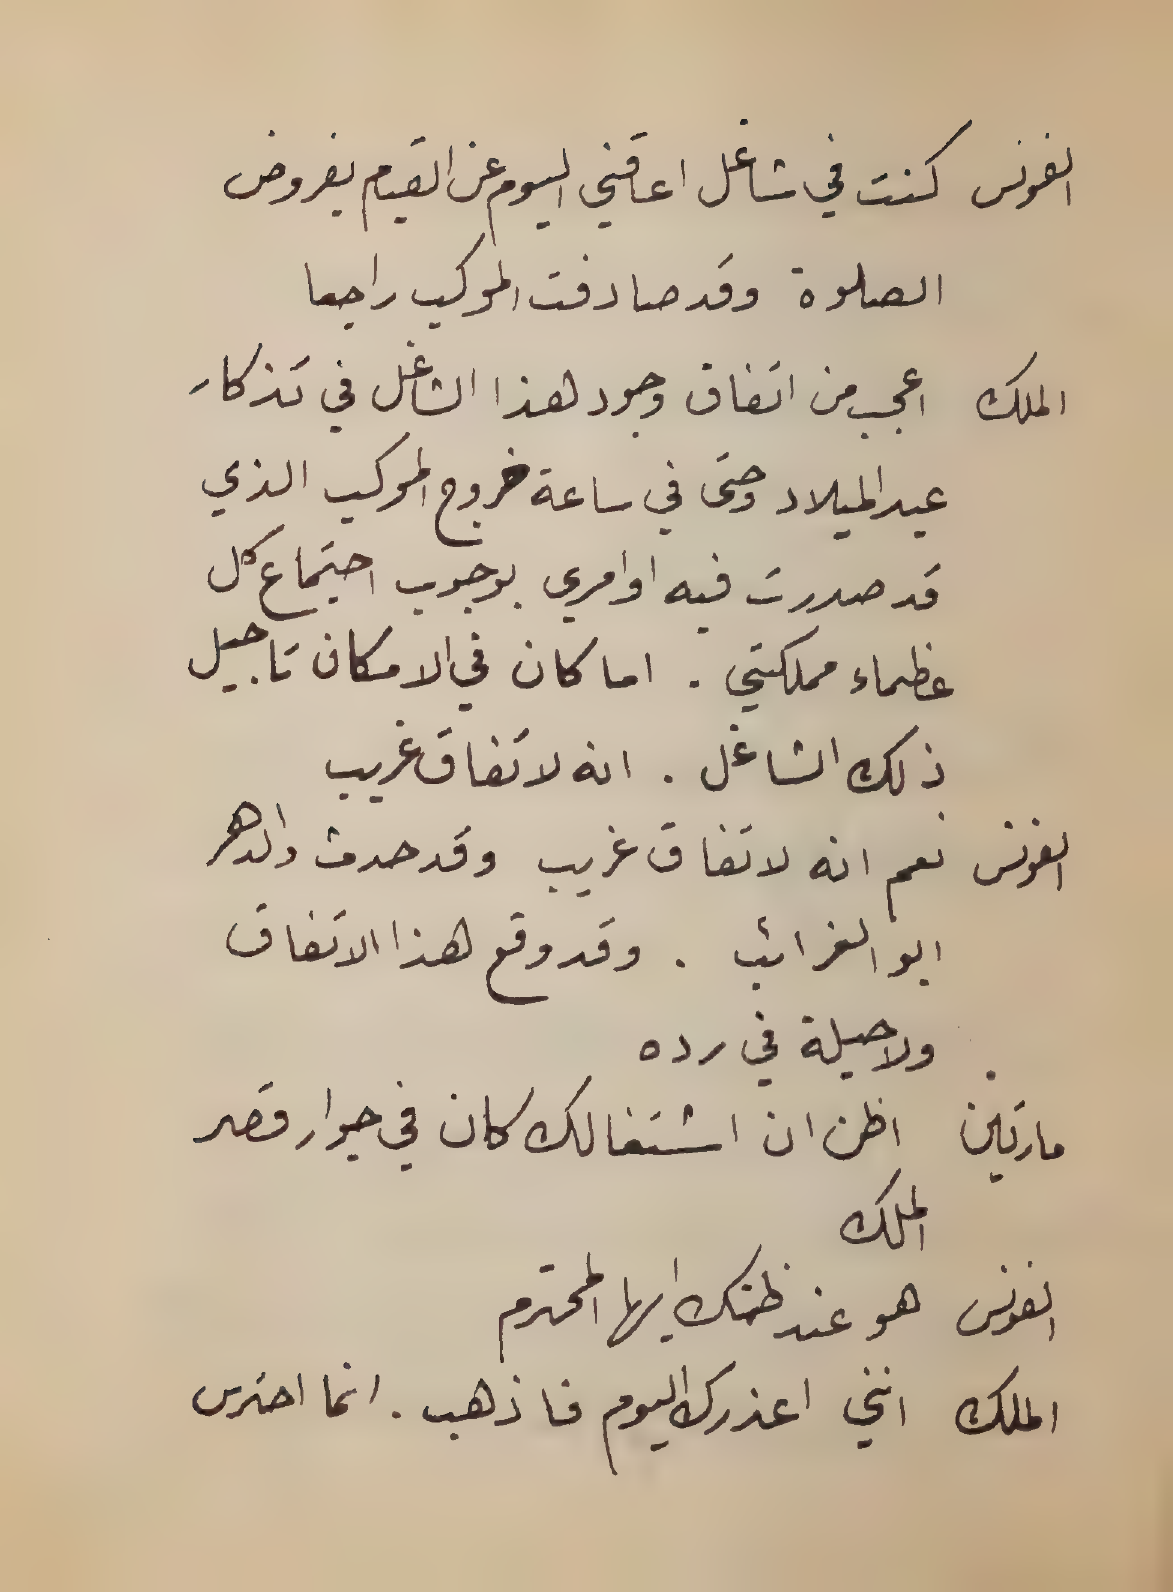 الفونس كنت في شاغل اعاقني اليوم عن القيام بفروض
الصلوة وقد صادفت الموكب راجعا
الملك اعجب من اتفاق وجود هذا الشاغل في تذكار
عيد الميلاد وحتى في ساعة خروج الموكب الذي
قد صدرت فيه اوامري بوجوب اجتماع كل
عظماء مملكتي . اما كان في الامكان تاجيل
ذلك الشاغل . انه لاتفاق غريب
الفونس نعم انه لاتفاق غريب وقد حدث والدهر
ابو الغرائب . وقد وقع هذا الاتفاق
ولا حيلة في رده
مارتين اظن ان اشتغالك كان في جوار قصر
الملك
الفونس هو عند ظنك ايها المحترم
الملك انني اعذرك اليوم فاذهب . انما احترس